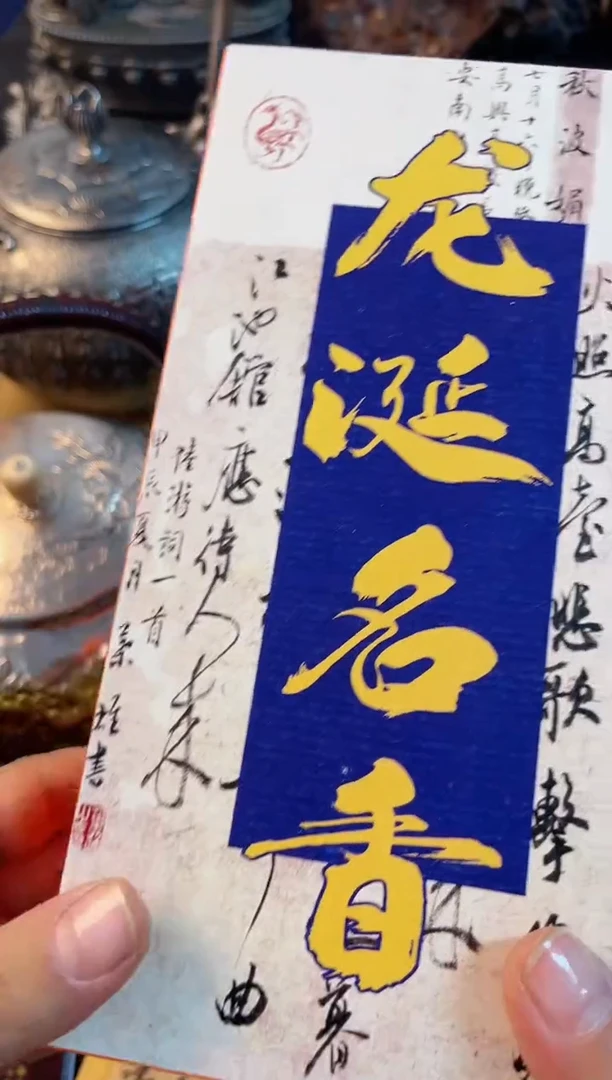 龙涎名香
秋波媚
七月十六晚
高興
安南
火照高臺悲歌擊
暮
曲
江池館應待人来
陸游詞一首
甲辰夏月